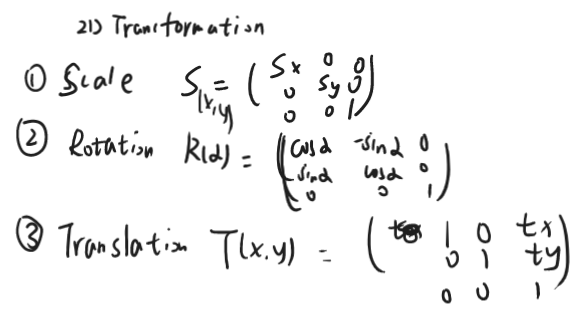 2D Transformation
① Scale S(x,y) = ( Sx 0 0
0 Sy 0
0 0 1 )
② Rotation R(α) = ( cosα -sinα 0
sinα cosα 0
0 0 1 )
③ Translation T(x.y) = ( 1 0 tx
0 1 ty
0 0 1